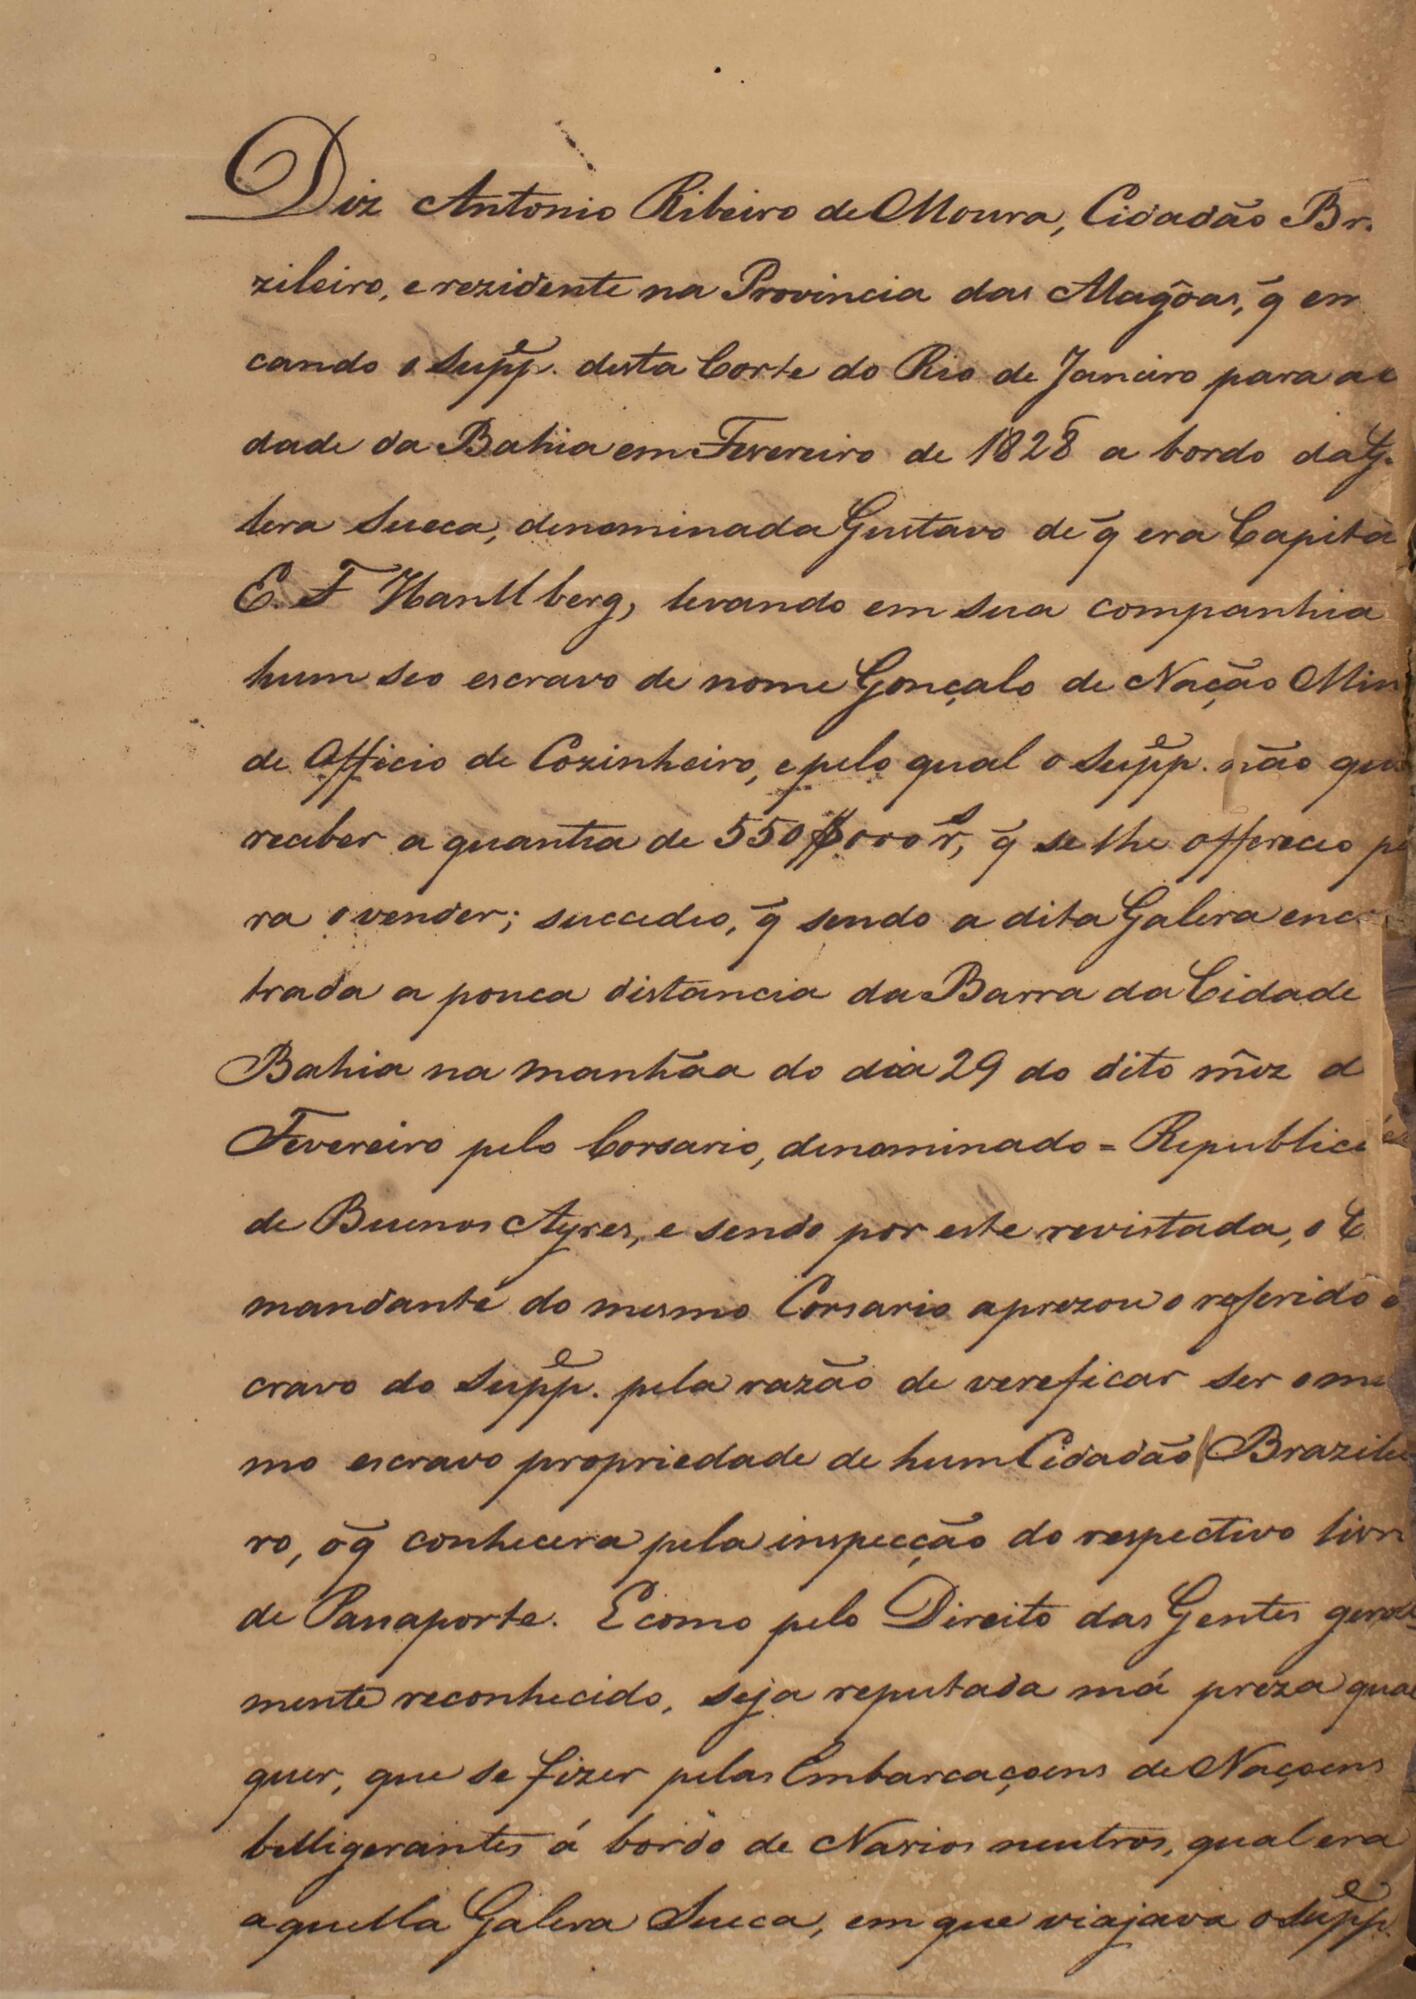 Diz Antonio Ribeiro de Moura, Cidadão Bra
zileiro, e rezidente na Provincia das Alagôas, q̃ em
cando o Supp.e desta Corte do Rio de Janeiro para a
dade da Bahia em Fevereiro de 1828 a bordo da G
lera Sueca, denominada Gustavo de q̃ era Capitã
E. F levando em sua companhia
hum seo escravo de nome Gonçalo de Nação Min
de Officio de Cozinheiro, e pelo qual o Supp.e não qui
receber a quantia de 550$000 r.s, q̃ se lhe offereceo pa
ra o vender; succedeo, q̃ sendo a dita Galera enco
trada a pouca distancia da Barra da Cidade
Bahia na manhãa do dia 29 do dito mêz d
Fevereiro pelo Corsario, denominado = Republica
de Buenos Ayres, e sendo por este revistada, o C
mandante do mesmo Corsario aprezou o referido e
cravo do Supp.e pela razão de vereficar ser o me
mo escravo propriedade de hum Cidadão Brazilei
ro, o q̃ conhecera pela inspecção do respectivo livr
de Passaporte. E como pelo Direito das Gentes geral
mente reconhecido, seja reputada má preza qual
quer, que se fizer pelas Embarcaçoens de Naçoens
belligerantes á bordo de Navios neutros, qual era
aquella Galera Sueca, em que viajava o Supp.e